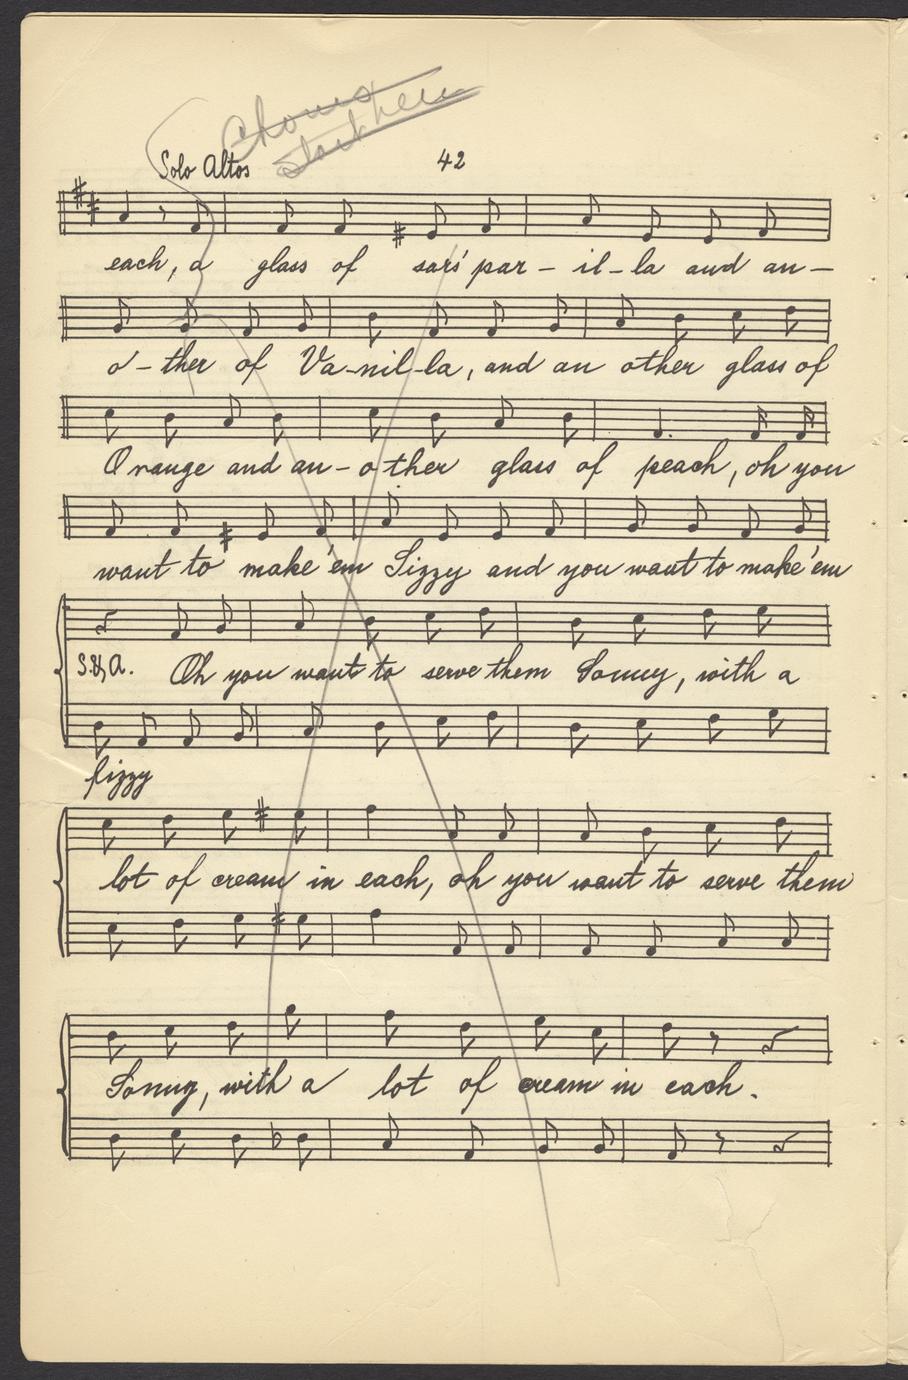 Chorus
start here
Solo Altos
42
each, a glass of sars'par - il - la and an -
o - ther of Va - nil - la, and an other glass of
Orange and an - o ther glass of peach, oh you
want to make 'em Sizzy and you want to make 'em
S. & A. Oh you want to serve them Sonny, with a
fizzy
lot of cream in each, oh you want to serve them
Sonny, with a lot of cream in each.